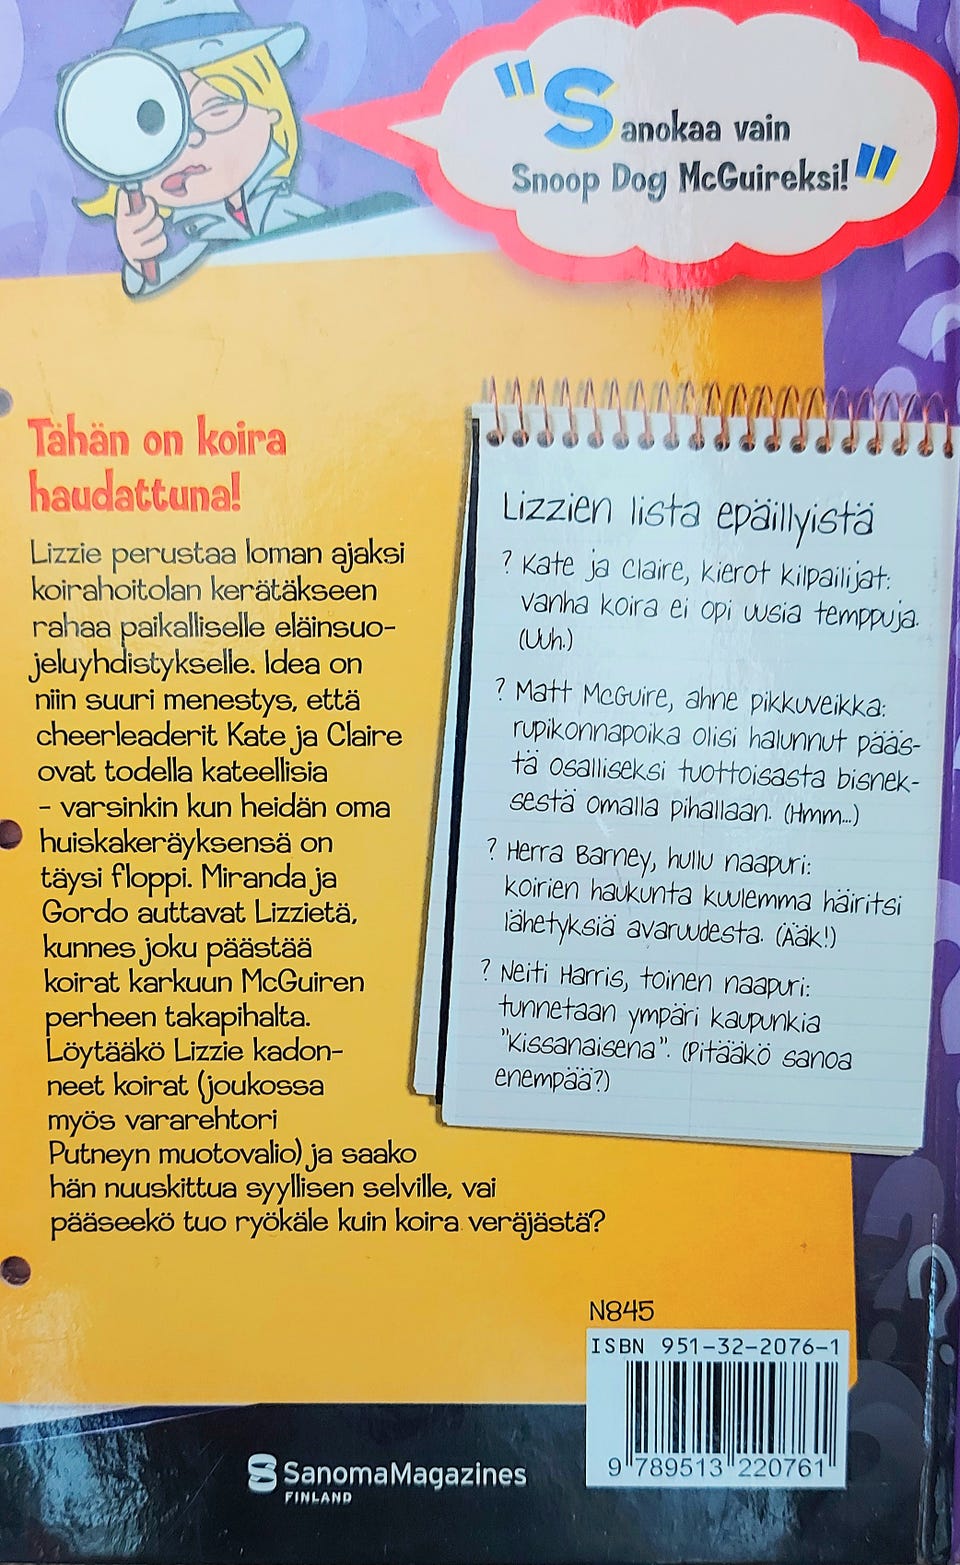 "Sanokaa vain
Snoop Dog McGuireksi!"
Tähän on koira
haudattuna!
Lizzie perustaa loman ajaksi
koirahoitolan kerätäkseen
rahaa paikalliselle eläinsuo-
jeluyhdistykselle. Idea on
niin suuri menestys, että
cheerleaderit Kate ja Claire
ovat todella kateellisia
- varsinkin kun heidän oma
huiskakeräyksensä on
täysi floppi. Miranda ja
Gordo auttavat Lizzietä,
kunnes joku päästää
koirat karkuun McGuiren
perheen takapihalta.
Löytääkö Lizzie kadon-
neet koirat (joukossa
myös vararehtori
Putneyn muotovalio) ja saako
hän nuuskittua syyllisen selville, vai
pääseekö tuo ryökäle kuin koira veräjästä?
Lizzien lista epäillyistä
? Kate ja Claire, kierot kilpailijat:
vanha koira ei opi uusia temppuja.
(Uuh.)
? Matt McGuire, ahne pikkuveikka:
rupikonnapoika olisi halunnut pääs-
tä osalliseksi tuottoisasta bisnek-
sestä omalla pihallaan. (Hmm...)
? Herra Barney, hullu naapuri:
koirien haukunta kuulemma häiritsi
lähetyksiä avaruudesta. (Ääk!)
? Neiti Harris, toinen naapuri:
tunnetaan ympäri kaupunkia
"Kissanaisena". (Pitääkö sanoa
enempää?)
N845
ISBN 951-32-2076-1
9 789513 220761
SanomaMagazines
FINLAND